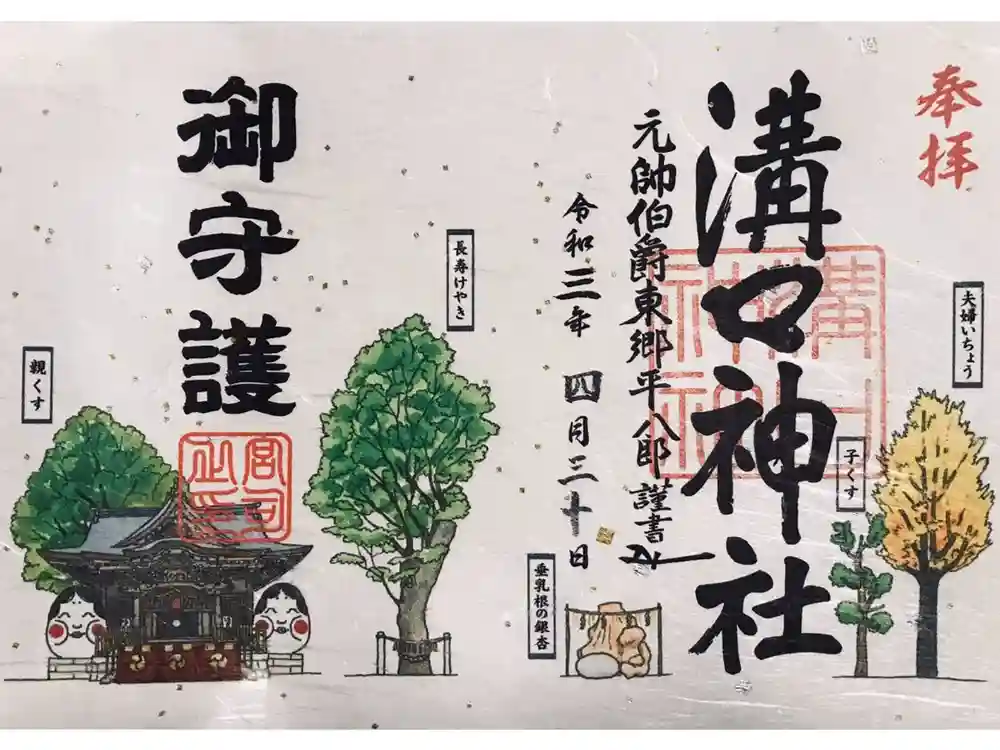 奉拝
溝口神社
夫婦いちょう
子くす
元帥伯爵東郷平八郎謹書
令和三年四月三十日
垂乳根の銀杏
長寿けやき
御守護
親くす